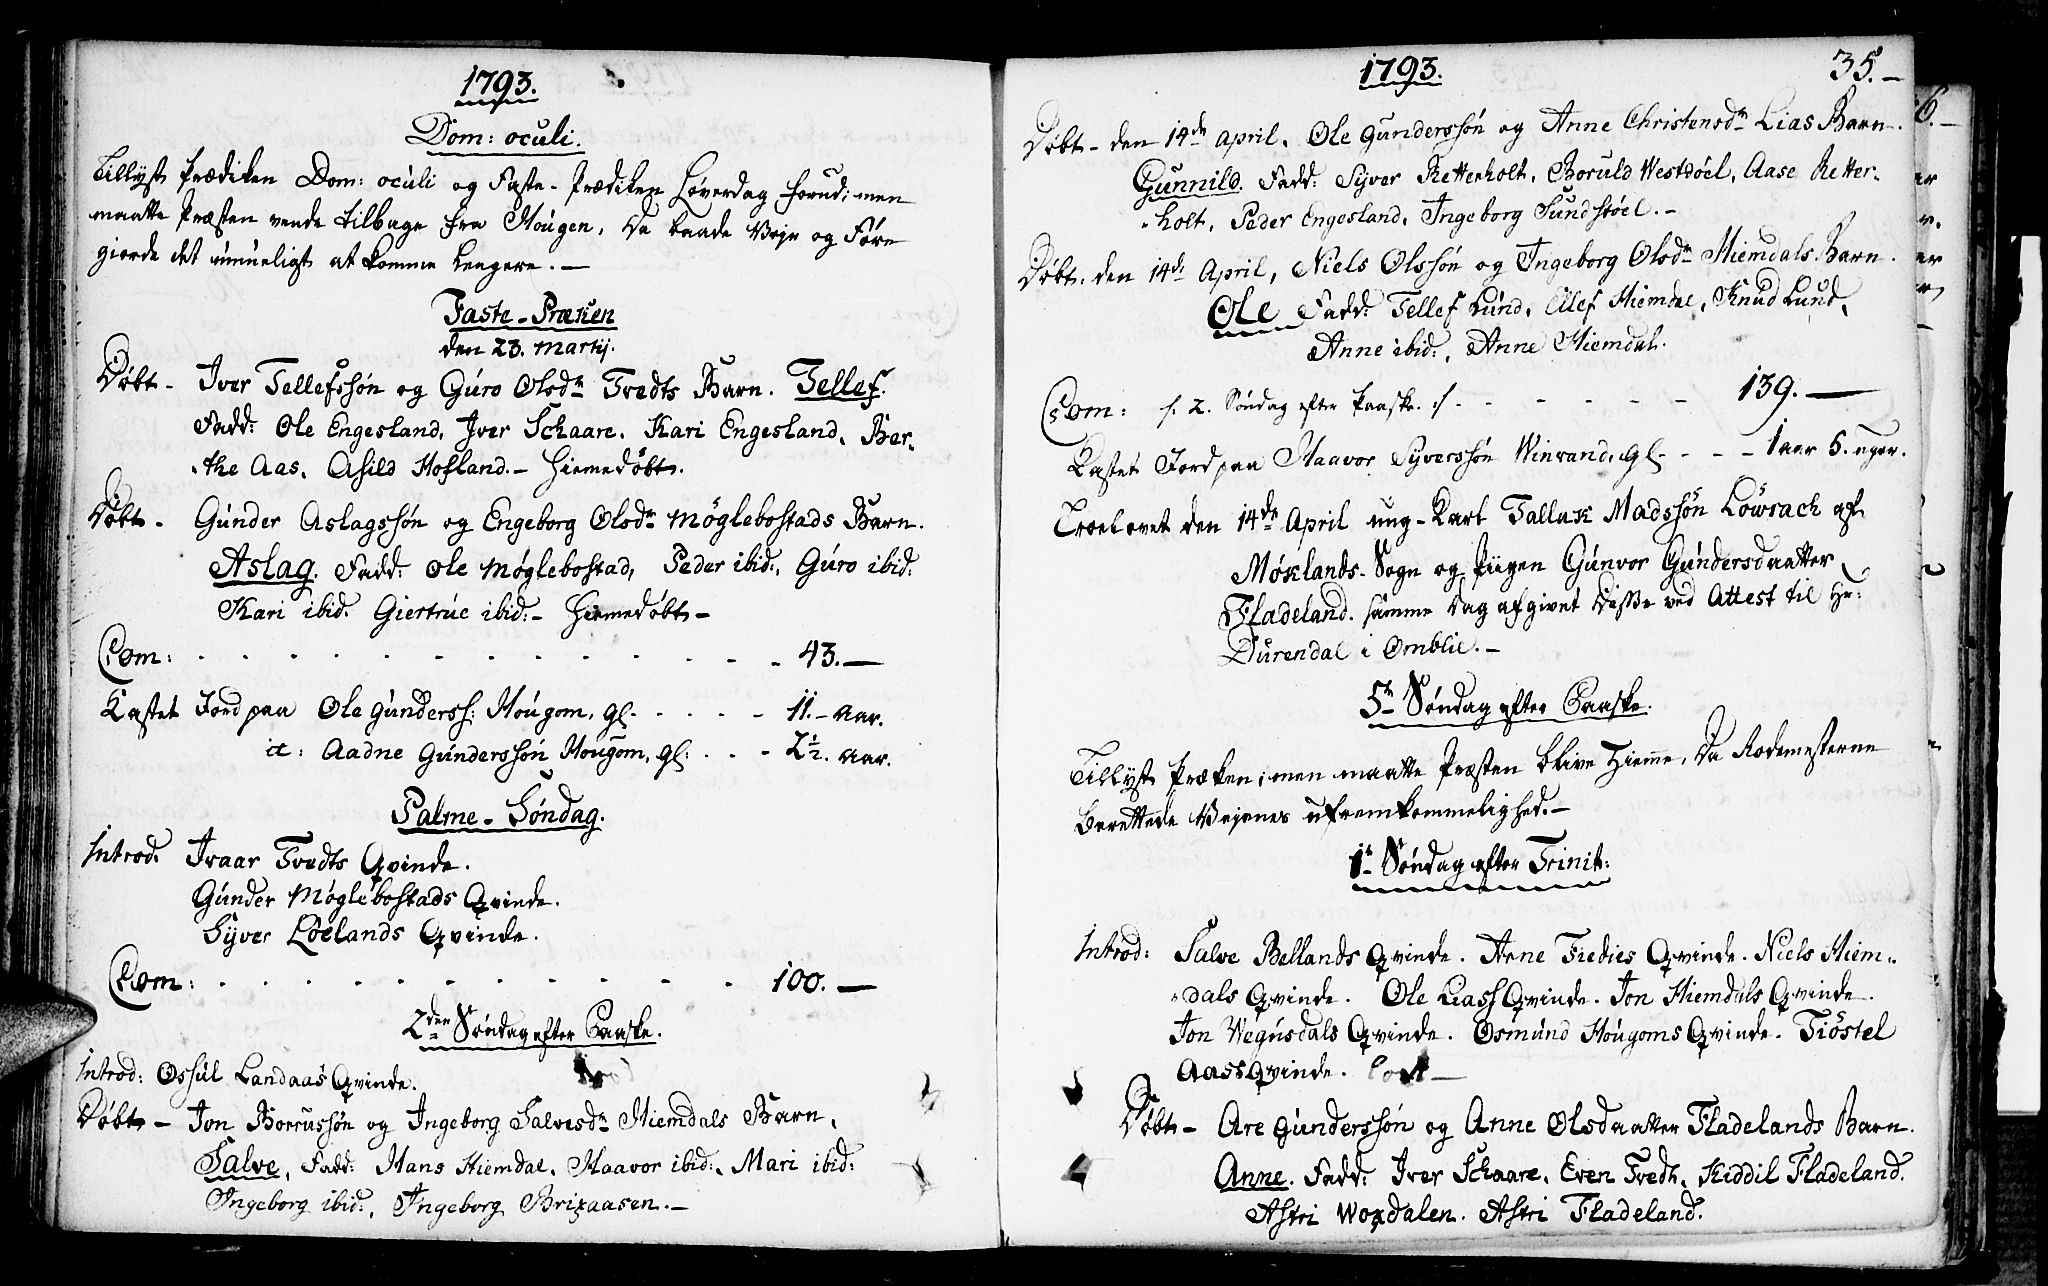 1793.
Dom: oculi.
Tillyst Prædiken Dom: oculi og Faste-Prædiken Løverdag forud; men
maatte Præsten vende tilbage fra Hougen, da baade Veje og Føre
giorde det umueligt at komme længere.—
Faste-Præken
den 23. Martij.
Døbt- Iver Tellefssøn og Guro Olsdr Tvedts Barn. Tellef.
Fadd: Ole Engesland, Iver Schaare, Kari Engesland, Ber-
-the Aas, Asild Hofland.- Hiemedøbt.
Døbt- Gunder Aslagssøn og Engeborg Olsdr Møglebostads Barn.
Aslag. Fadd: Ole Møglebostad, Peder ibid:, Guro ibid:
Kari ibid. Giertrue ibid:- Hiemedøbt-
Com: - - - 43.—
Kastet Jord paa Ole Gunderss: Hougom, gl. - - - 11.- aar.
it: Aadne Gunderssøn Hougom, gl: - - - 2½. aar.
Palme-Søndag.
Introd. Ivaar Tvedts Qvinde.
Gunder Møglebostads Qvinde.
Syver Løelands Qvinde.
Com: - - - 100.—
2den Søndag efter Paaske.
Introd: Ossul Landaas Qvinde.
Døbt- Jon Borrussøn og Ingeborg Salvesdr Hiemdals Barn,
Salve, Fadd: Hans Hiemdal, Haavor ibid:, Mari ibid:
Ingeborg ibid:, Ingeborg Brixaasen.-
1793. 35.-
Døbt- den 14de April, Ole Gunderssøn og Anne Christensdr Lias Barn.
Gunnild. Fadd: Syver Retterholt, Boruld Westøel, Aase Retter-
-holt, Peder Engesland, Ingeborg Sundstøel.-
Døbt. den 14de April, Niels Olssøn og Ingeborg Olsdr Hiemdals Barn.
Ole Fadd: Tellef Lund, Ellef Hiemdal, Knud Lund,
Anne ibid:, Anne Hiemdal.
Com: /: 2. Søndag efter Paaske. :/ - - - 139.—
Kastet Jord paa Haavor Syverssøn Winrand, gl. - - - 1 aar 5. uger.
Troelovet den 14de April ung-Karl Tallak Madssøn Löwrach af
Møklands-Sogn og Piigen Gunvor Gundersdaatter
Fladeland. samme Dag afgivet Disse ved Attest til Hr:
Durendal i Omblie.-
5te Søndag efter Paaske.
Tillyst Præken; men maatte Præsten blive Hiemme, da Rodemesterne
berettede Vejenes ufremkommelighed.-
1te Søndag efter Trinit:
Introd: Salve Bellands Qvinde. Arne Fredies Qvinde. Niels Hiem-
-dals Qvinde. Ole Liass Qvinde. Jon Hiemdals Qvinde.
Jon Wegusdals Qvinde. Osmund Hougoms Qvinde. Tiöstel
Aass Qvinde.
Døbt- Are Gunderssøn og Anne Olsdaatter Fladelands Barn.
Anne. Fadd: Iver Schaare, Even Tvedt, Kiddil Fladeland.
Astri Woxdalen. Astri Fladeland.